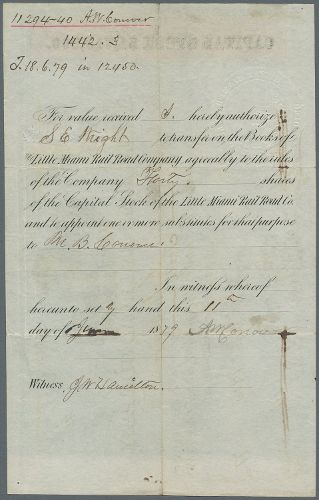 11294-40 A.W. Conover
1442. 3
T.18.6.79 in 12450.
For value received I hereby authorize
S E Wright to transfer on the Books of
the Little Miami Rail Road Company agreeably to the rules
of the Company Forty shares
of the Capital Stock of the Little Miami Rail Road Co.
and to appoint one or more substitutes for that purpose
to B.
In witness whereof
hereunto set my hand this 11th
day of June 1879 A W Conover
Witness, J W Hamilton